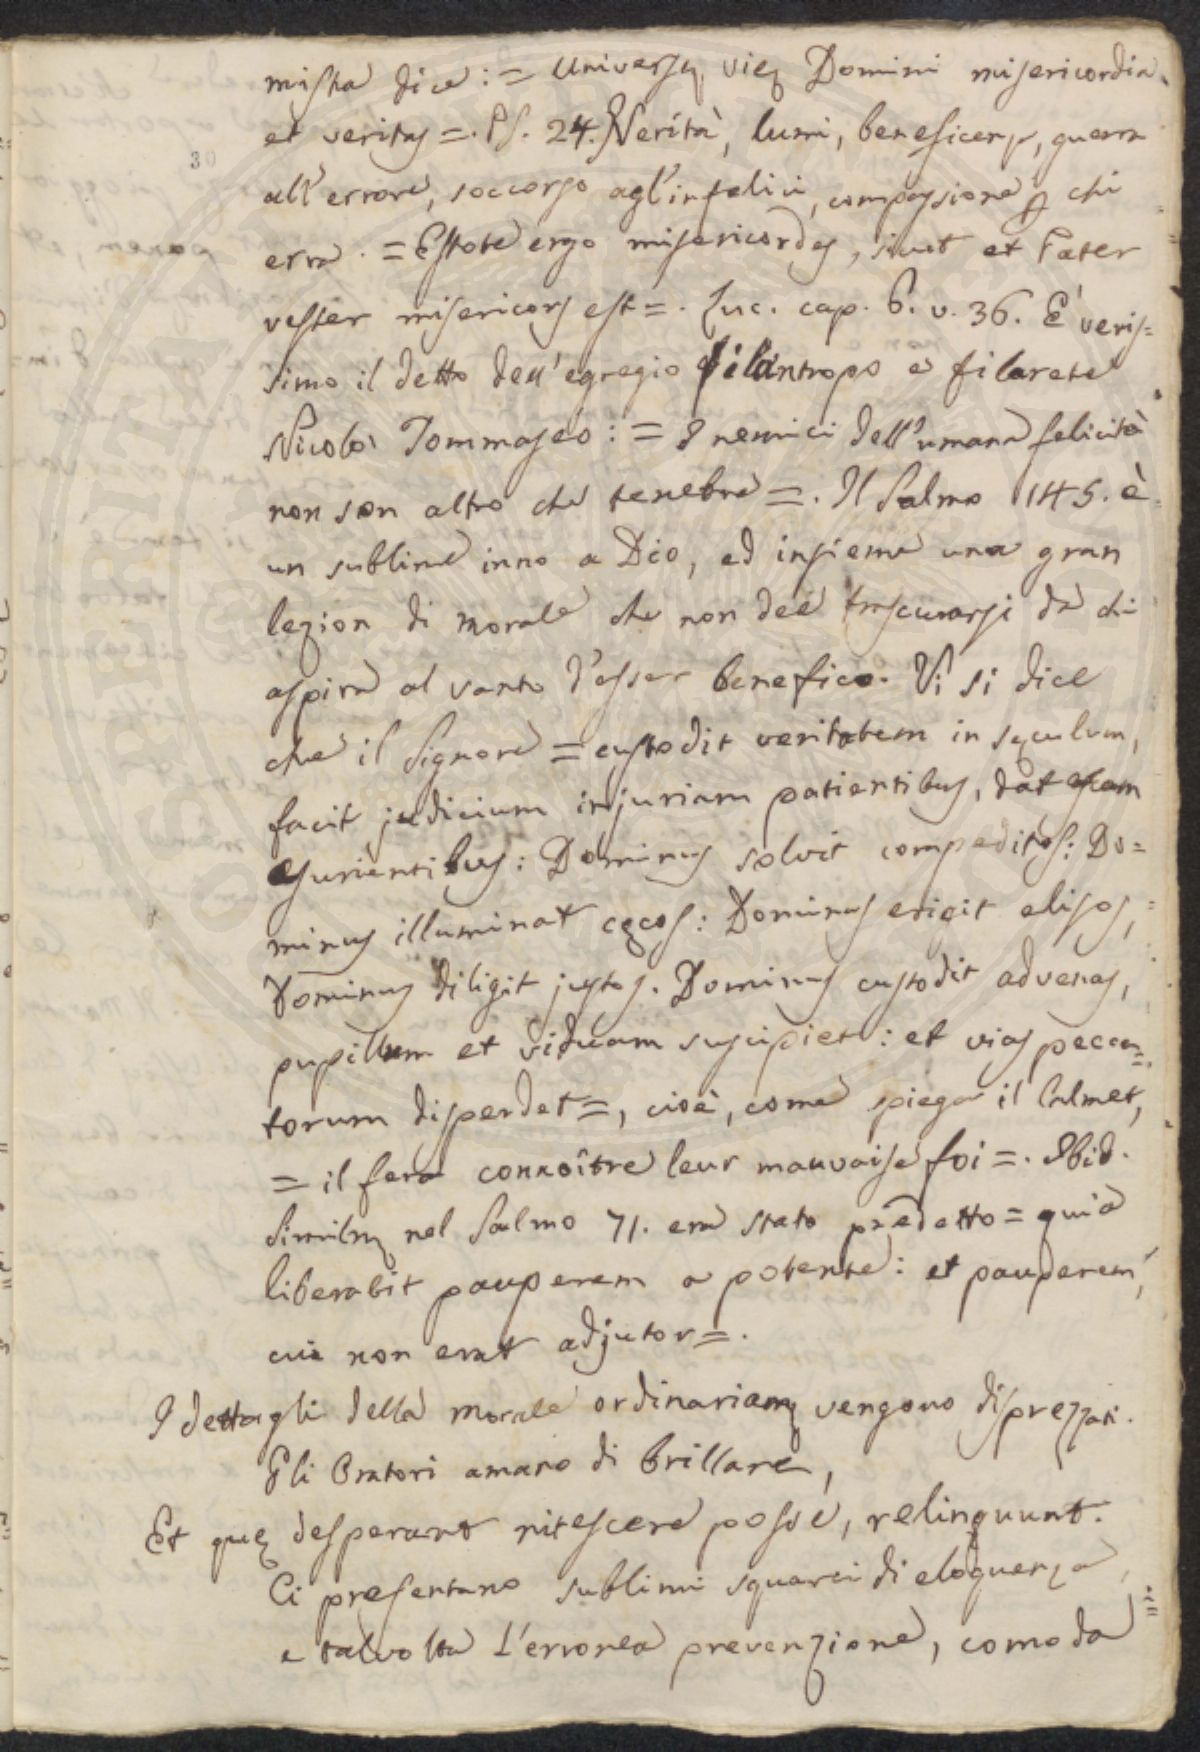 mista dice: = Universę vię Domini misericordia
et veritas =. Ps. 24. Verità, lumi, beneficenza, guerra
all'errore, soccorso agl'infelici, compassione p chi
erra. = Estote ergo misericordes, sicut et Pater
vester misericors est =. Luc. cap. 6. v. 36. È veris=
simo il detto dell'egregio filantropo e filarete
Nicolò Tommaseo: = I nemici dell'umana felicità
non son altro che tenebre =. Il Salmo 145. è
un sublime inno a Dio, ed insieme una gran
lezion di morale che non dee trascurarsi da chi
aspira al vanto d'esser benefico. Vi si dice
che il Signore = custodit veritatem in sęculum,
facit judicium injuriam patientibus, dat escam
esurientibus: Dominus solvit compeditos: Do=
minus illuminat cęcos: Dominus erigit elisos,
Dominus diligit justos. Dominus custodit advenas,
pupillum et viduam suscipiet: et vias pecca=
torum disperdet =, cioè, come spiega il Calmet,
= il fera connoître leur mauvaise foi =. Ibid.
Similm nel Salmo 71. era stato predetto = quia
liberabit pauperem a potente: et pauperem,
cui non erat adjutor =.
I dettagli della morale ordinariam vengono disprezzati.
Gli Oratori amano di brillare,
Et quę desperant nitescere posse, relinquunt.
Ci presentano sublimi squarci di eloquenza,
e talvolta l'erronea prevenzione, comoda
30